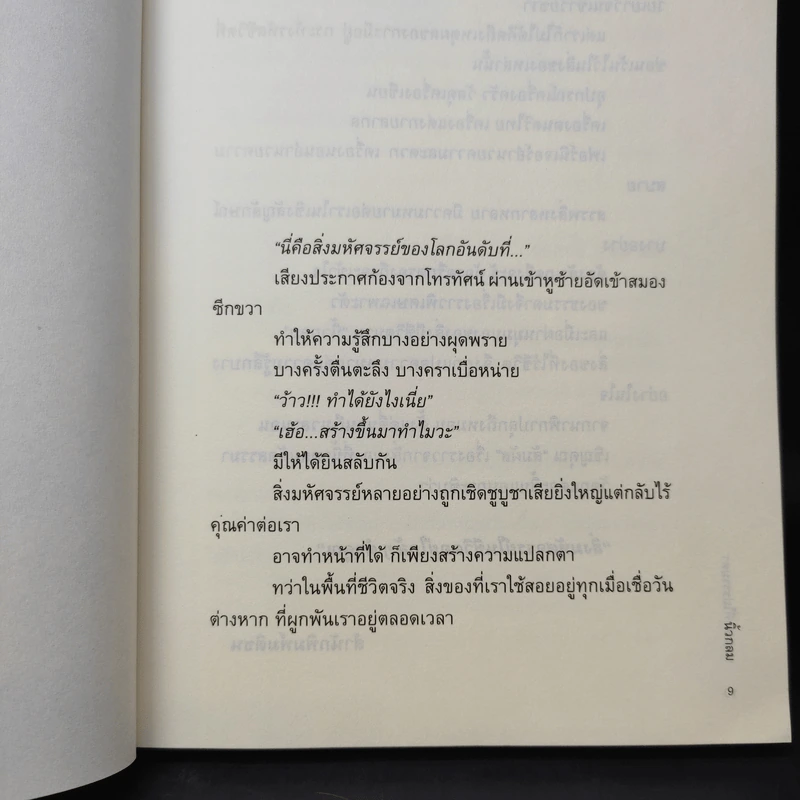 “นี่คือสิ่งมหัศจรรย์ของโลกอันดับที่...”
เสียงประกาศก้องจากโทรทัศน์ ผ่านเข้าหูซ้ายอัดเข้าสมอง
ซีกขวา
ทำให้ความรู้สึกบางอย่างผุดพราย
บางครั้งตื่นตะลึง บางคราเบื่อหน่าย
“ว้าว!!! ทำได้ยังไงเนี่ย”
“เฮ้อ...สร้างขึ้นมาทำไมวะ”
มีให้ได้ยินสลับกัน
สิ่งมหัศจรรย์หลายอย่างถูกเชิดชูบูชาเสียยิ่งใหญ่แต่กลับไร้
คุณค่าต่อเรา
อาจทำหน้าที่ได้ ก็เพียงสร้างความแปลกตา
ทว่าในพื้นที่ชีวิตจริง สิ่งของที่เราใช้สอยอยู่ทุกเมื่อเชื่อวัน
ต่างหาก ที่ผูกพันเราอยู่ตลอดเวลา
นิ้วกลม
9